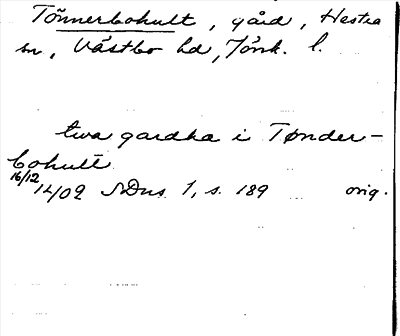 Tönnerbohult, gård, Hestra
sn, Västbo hd, Jönk. l.
twa gardha i Tønder-
bohult
16/12
1409 SDns 1, s. 189 orig.